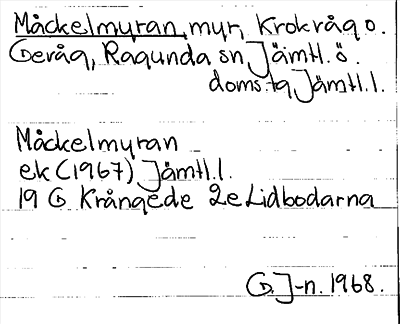 Måckelmyran, myr, Krokvåg o.
Gevåg, Ragunda sn, Jämtl. ö.
doms. tg Jämtl. l.
Måckelmyran
ek (1967) Jämtl. l.
19 G Krångede 2e Lidbodarna
G. J-n. 1968.